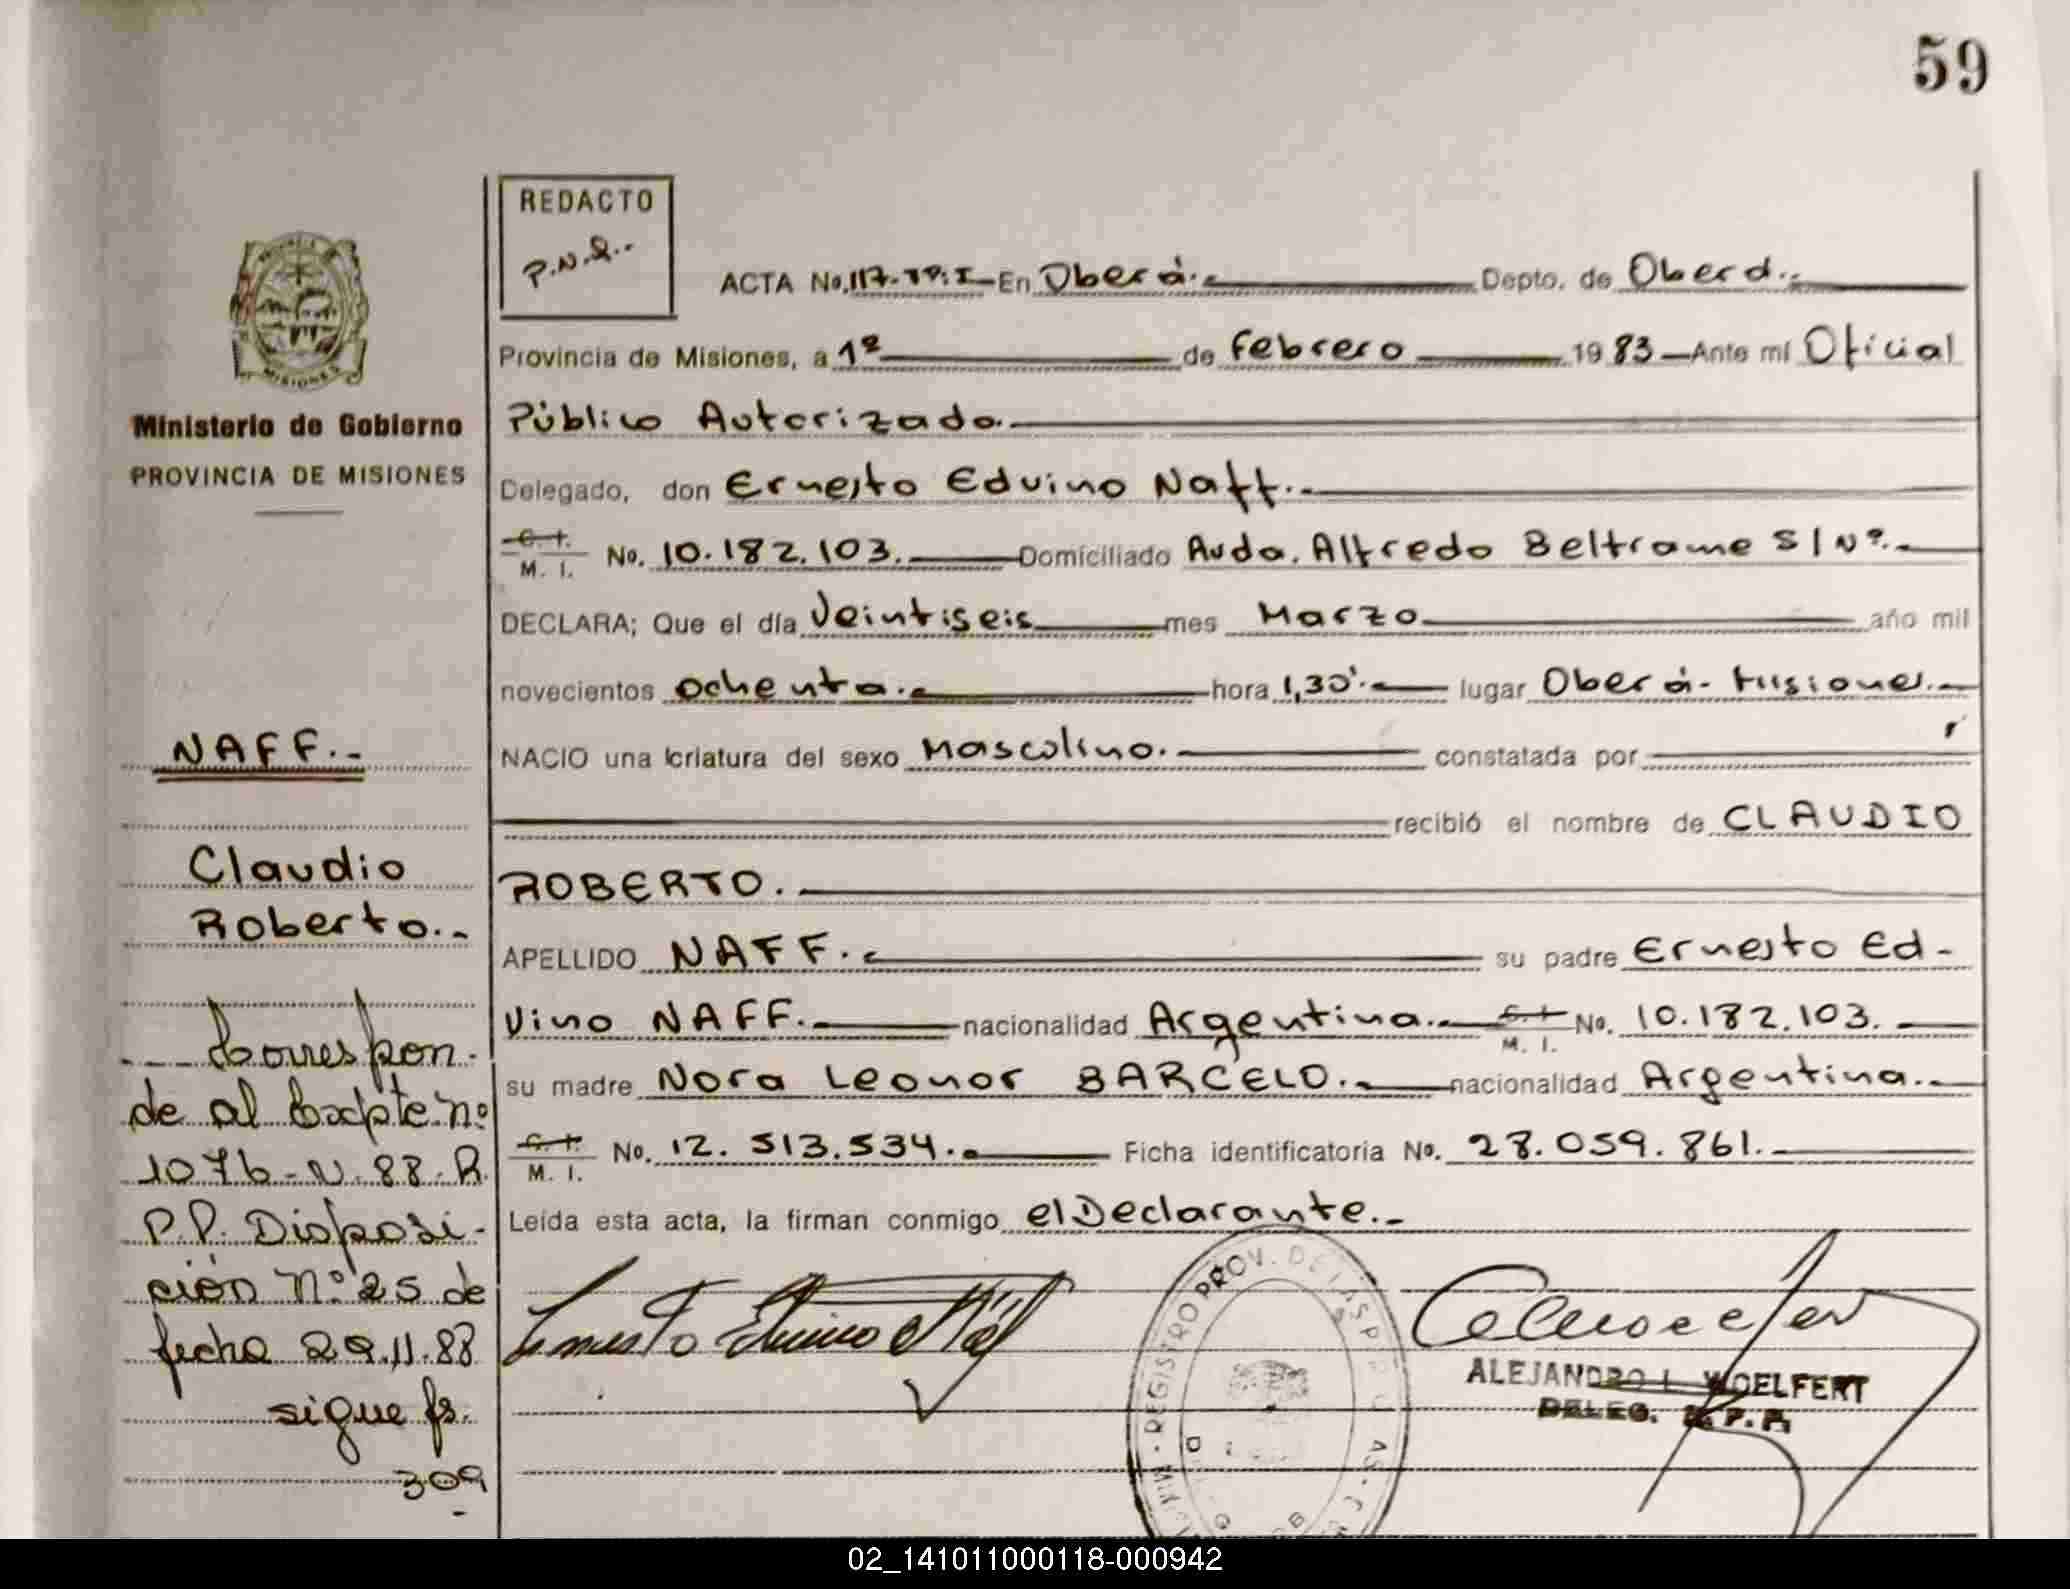 59
REDACTO
P.N.R..
ACTA No. 117-Tº:I-En Oberá.- Depto. de Oberá.-
Provincia de Misiones, a 1º de Febrero 1983-Ante mí Oficial
Público Autorizado.
Delegado, don Ernesto Edvino Naff.-
C. I. M. I. No. 10.182.103. Domiciliado Avda. Alfredo Beltrame S/Nº.-
DECLARA; Que el día Veintiseis mes Marzo año mil
novecientos ochenta.- hora 1,30'.- lugar Oberá-Misiones.-
NACIO una criatura del sexo Masculino.- constatada por
recibió el nombre de CLAUDIO
ROBERTO.
APELLIDO NAFF.- su padre Ernesto Ed-
vino NAFF.- nacionalidad Argentina.- C. I. M. I. No. 10.182.103.
su madre Nora Leonor BARCELO.- nacionalidad Argentina.-
C. I. M. I. No. 12.513.534.- Ficha identificatoria No. 28.059.861.
Leída esta acta, la firman conmigo el Declarante.-
MISIONES
Ministerio de Gobierno
PROVINCIA DE MISIONES
NAFF.-
Claudio
Roberto.-
Correspon-
de al Expte Nº
1076-N-88-R.
P.P. Disposi-
ción Nº 25 de
fecha 29.11.88
sigue fs.
309
REGISTRO PROV. DE LAS P
ALEJANDRO L. WOELFERT
DELEG. R.P.P.
02_141011000118-000942